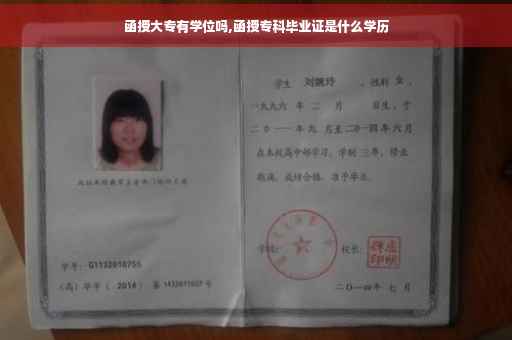 函授大专有学位吗,函授专科毕业证是什么学历
学生 刘婉玲 ,性别 女 ,
一九九六 年 二 月 日生,于
二〇一一年九 月至二〇一四年 六月
在本校高中部学习,学制 三年,修业
期满,成绩合格,准予毕业。
学校: 校长:
学号: G1132010755
(高)毕字( 2014 )第 1432011027 号
二〇一四年 七 月